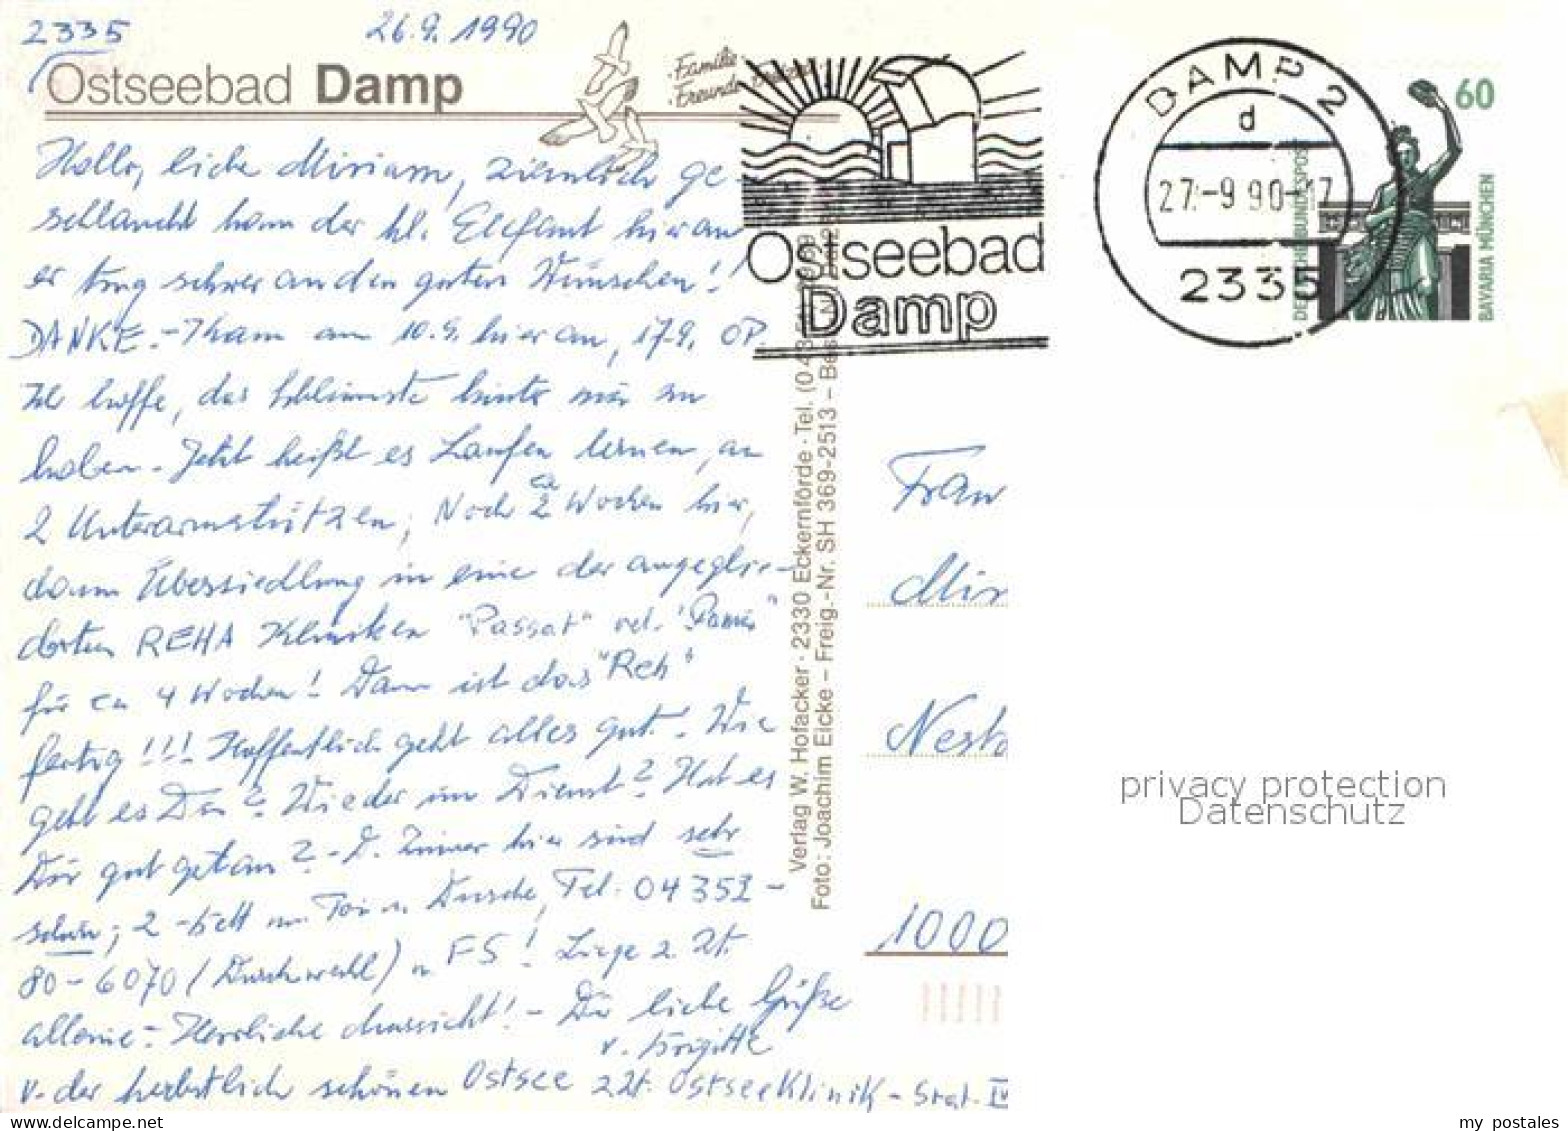 2335 26.9.1990
Ostseebad Damp
Familie
Freunde
Hallo, liebe Miriam, ziemlich ge
schlaucht kam der kl. Elefant hier an
er trug schwer an den guten Wünschen!
DANKE. - I kam am 10.9. hier an, 17.9. OP.
Ich hoffe, das Schlimmste hinter mir zu
haben. Jetzt heißt es Laufen lernen, an
2 Unterarmstützen, Noch ca 2 Wochen hier,
dann Übersiedlung in eine der angeglie-
derten REHA Kliniken "Passat" od.
für ca 4 Wochen! Dann ist das "Reh"
fertig!!! Hoffentlich geht alles gut! Wie
geht es Dir? Wieder im Dienst? Hat es
Dir gut getan? - D. Zimmer hier sind sehr
schön; 2-Bett m. Toi u. Dusche, Tel. 04352 -
80-6070 (Durchwahl) u FS! Liege z. Zt.
alleine. - Herrliche Aussicht! - Dir liebe Grüße
v. Brigitte
v. der herbstlich schönen Ostsee z Zt. Ostseeklinik - Stat. IV
Verlag W. Hofacker · 2330 Eckernförde · Tel. (0 43
Foto: Joachim Eicke – Freig.-Nr. SH 369-2513 – Bes
Ostseebad
Damp
DAMP 2
d
27.-9.90-17
2335
60
DEUTSCHE BUNDESPOST
BAVARIA MÜNCHEN
Frau
Mir
Nest
1000
privacy protection
Datenschutz
my postales